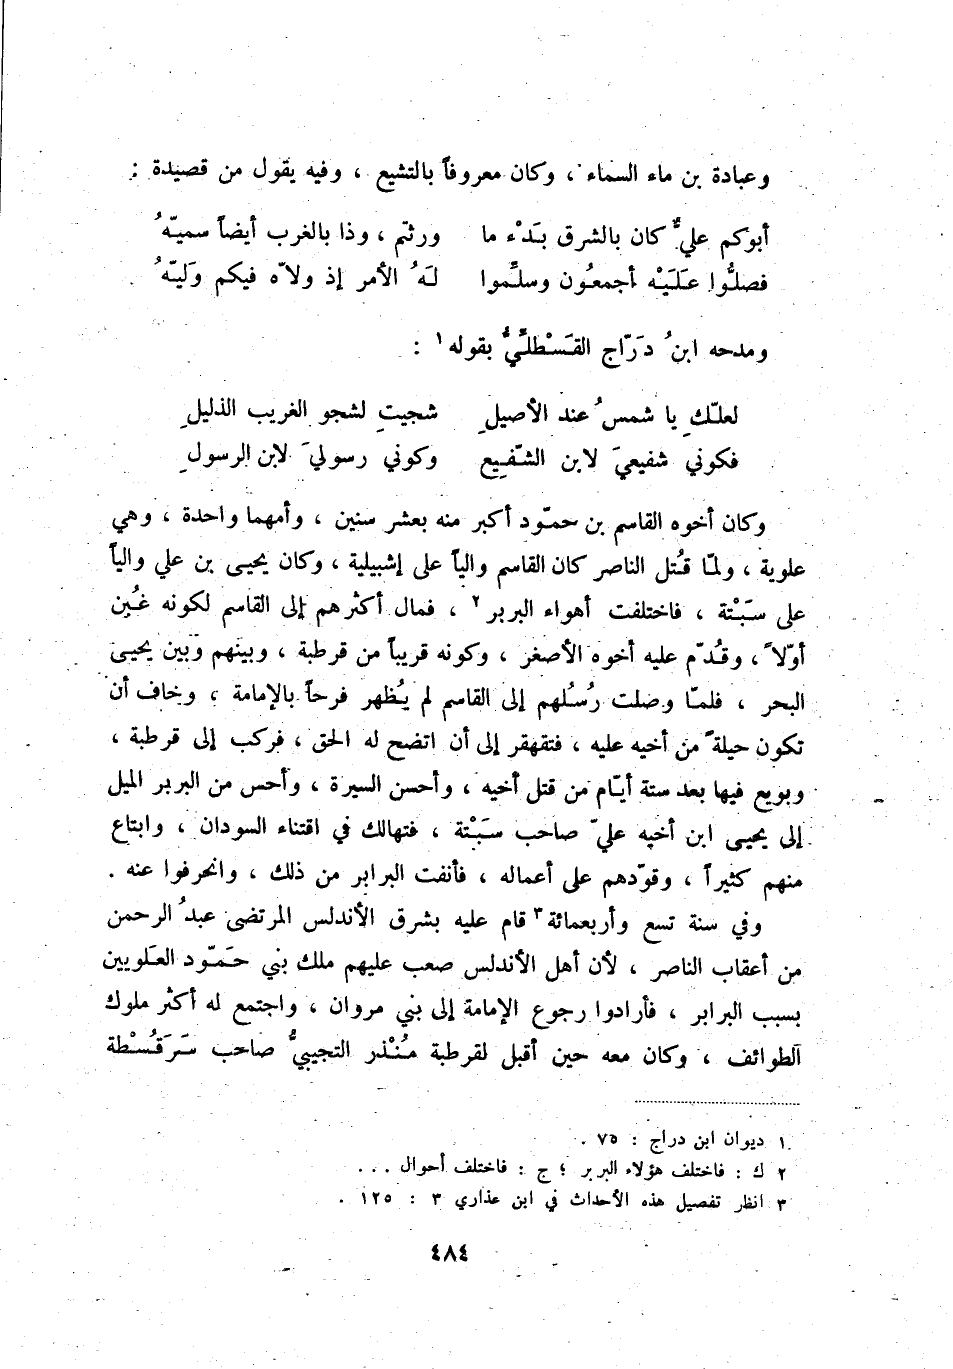 وعبادة بن ماء السماء ، وكان معروفاً بالتشيع ، وفيه يقول من قصيدة :
أبوكم عليٌّ كان بالشرق بَدْء ما ورثتم ، وذا بالغرب أيضاً سميّهُ
فصلُّوا عَلَيْه أجمعُون وسلِّموا لَهُ الأمر إذ ولاّه فيكم وَليّهُ
ومدحه ابنُ دَرّاج القَسْطلِّيُّ بقوله ١ :
لعلّكِ يا شمسُ عند الأصيلِ شجيتِ لشجو الغريب الذليلِ
فكوني شفيعيَ لابن الشّفِيعِ وكوني رسوليَ لابن الرسولِ
وكان أخوه القاسم بن حمّود أكبر منه بعشر سنين ، وأمهما واحدة ، وهي
علوية ، ولمّا قُتل الناصر كان القاسم والياً على إشبيلية ، وكان يحيى بن علي والياً
على سَبْتة ، فاختلفت أهواء البربر ٢ ، فمال أكثرهم إلى القاسم لكونه غُبن
أوّلاً ، وقُدّم عليه أخوه الأصغر ، وكونه قريباً من قرطبة ، وبينهم وبين يحيى
البحر ، فلمّا وصلت رُسُلهم إلى القاسم لم يُظهر فرحاً بالإمامة ، وخاف أن
تكون حيلةً من أخيه عليه ، فتقهقر إلى أن اتضح له الحق ، فركب إلى قرطبة ،
وبويع فيها بعد ستة أيّام من قتل أخيه ، وأحسن السيرة ، وأحس من البربر الميل
إلى يحيى ابن أخيه عليّ صاحب سَبْتة ، فتهالك في اقتناء السودان ، وابتاع
منهم كثيراً ، وقوّدهم على أعماله ، فأنفت البرابر من ذلك ، وانحرفوا عنه .
وفي سنة تسع وأربعمائة ٣ قام عليه بشرق الأندلس المرتضى عبدُ الرحمن
من أعقاب الناصر ، لأن أهل الأندلس صعب عليهم ملك بني حَمّود العَلويين
بسبب البرابر ، فأرادوا رجوع الإمامة إلى بني مروان ، واجتمع له أكثر ملوك
الطوائف ، وكان معه حين أقبل لقرطبة مُنْذر التجيبيُّ صاحب سَرَقُسْطة
١ ديوان ابن دراج : ٧٥ .
٢ ك : فاختلف هؤلاء البربر ؛ ج : فاختلف أحوال ...
٣ انظر تفصيل هذه الأحداث في ابن عذاري ٣ : ١٢٥ .
٤٨٤